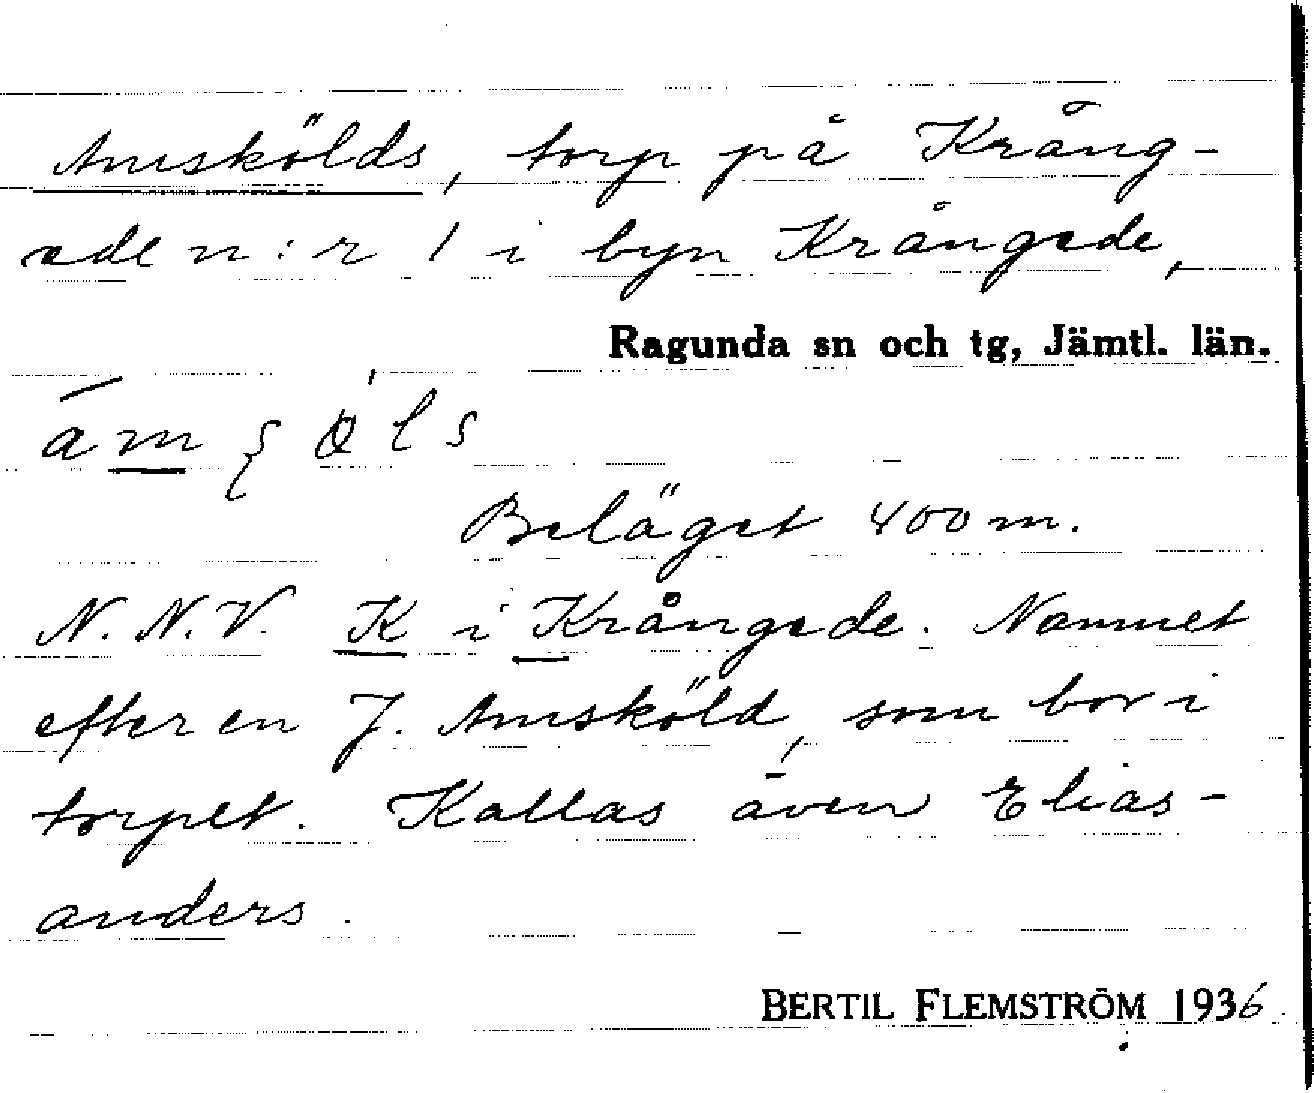 Amskölds, torp på Krång-
ede n:r 1 i byn Krångede,
Ragunda sn och tg, Jämtl. län.
Beläget 400 m.
N.N.V. K i Krångede. Namnet
efter en J. Amsköld, som bor i
torpet. Kallas även Elias-
anders.
BERTIL FLEMSTRÖM 1936